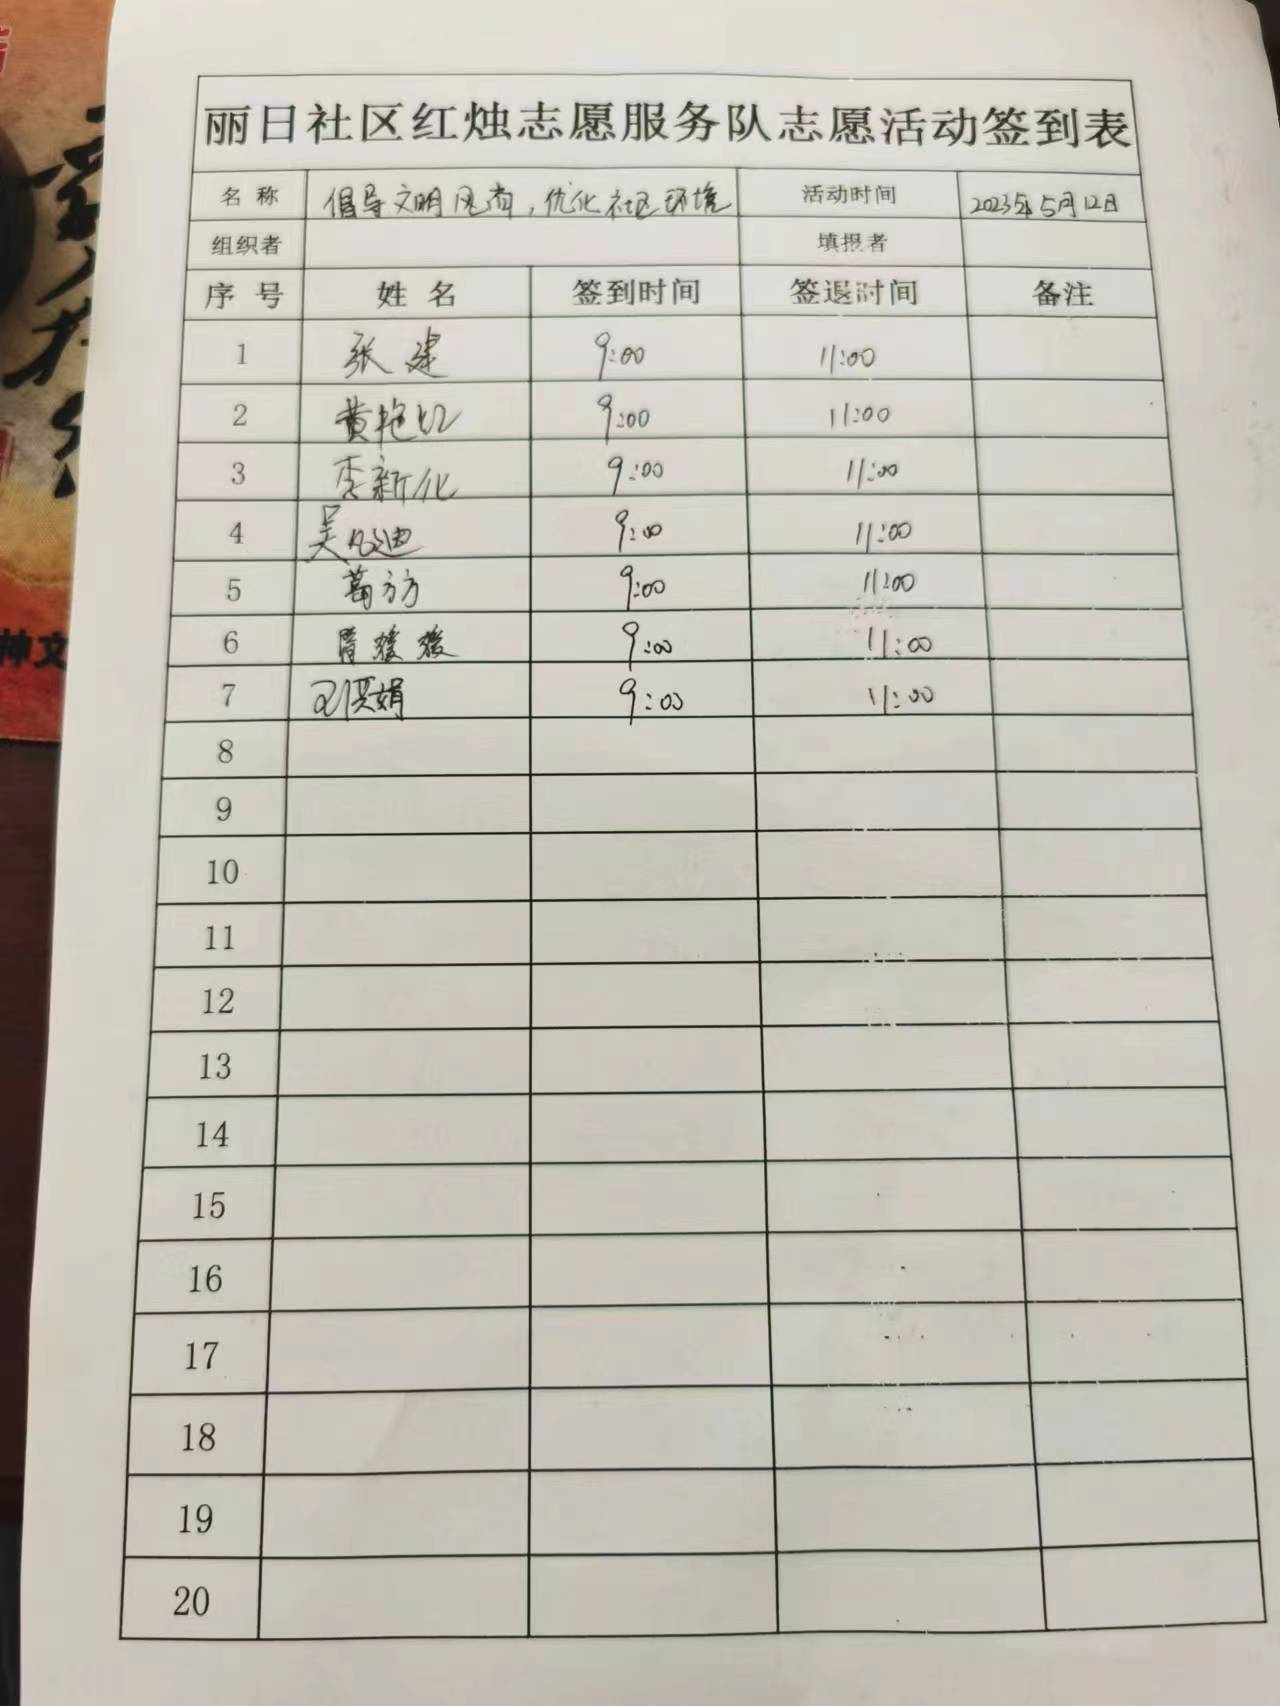 丽日社区红烛志愿服务队志愿活动签到表
名称 倡导文明风尚，优化社区环境 活动时间 2023年5月12日
组织者 填报者
序号 姓名 签到时间 签退时间 备注
1 张建 9:00 11:00
2 黄艳红 9:00 11:00
3 李新化 9:00 11:00
4 吴凡迪 9:00 11:00
5 葛方方 9:00 11:00
6 媛媛 9:00 11:00
7 娟 9:00 11:00
8
9
10
11
12
13
14
15
16
17
18
19
20
神文